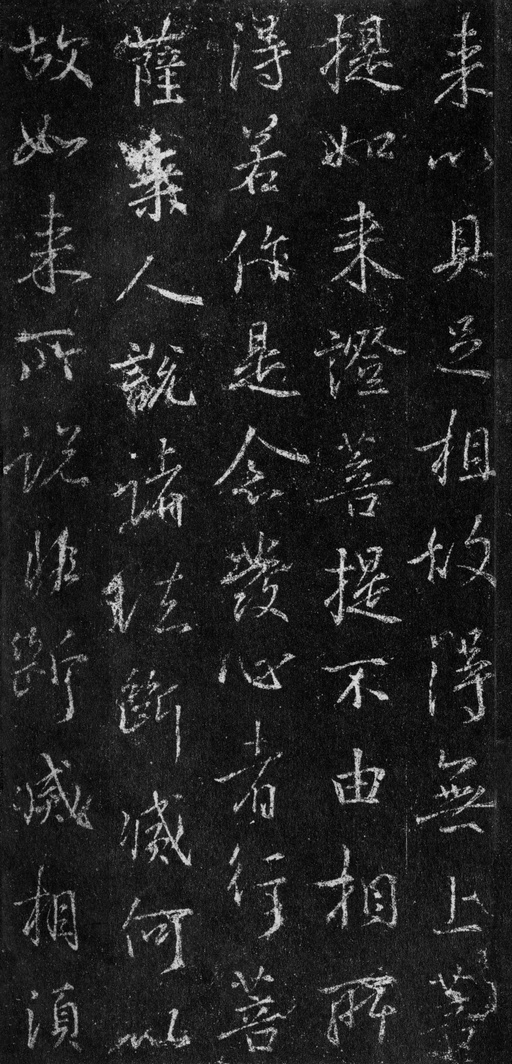 来以具足相故得無上菩
提如来證菩提不由相所
得若作是念發心者行菩
薩乘人說諸法斷滅何以
故如来所說非斷滅相須